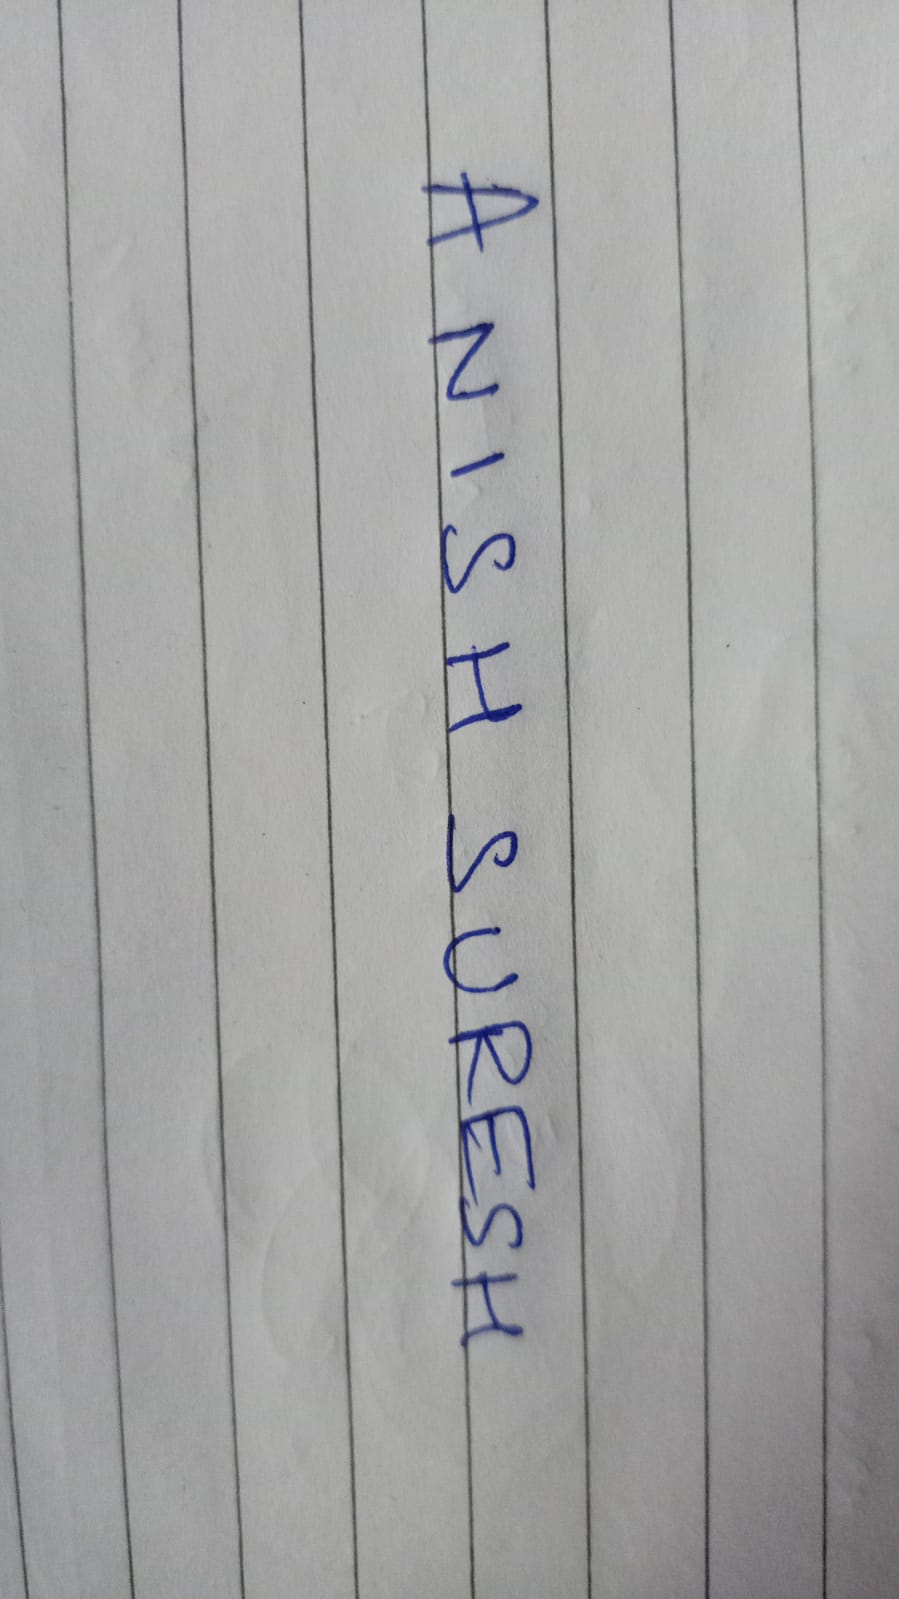 ANISH SURESH